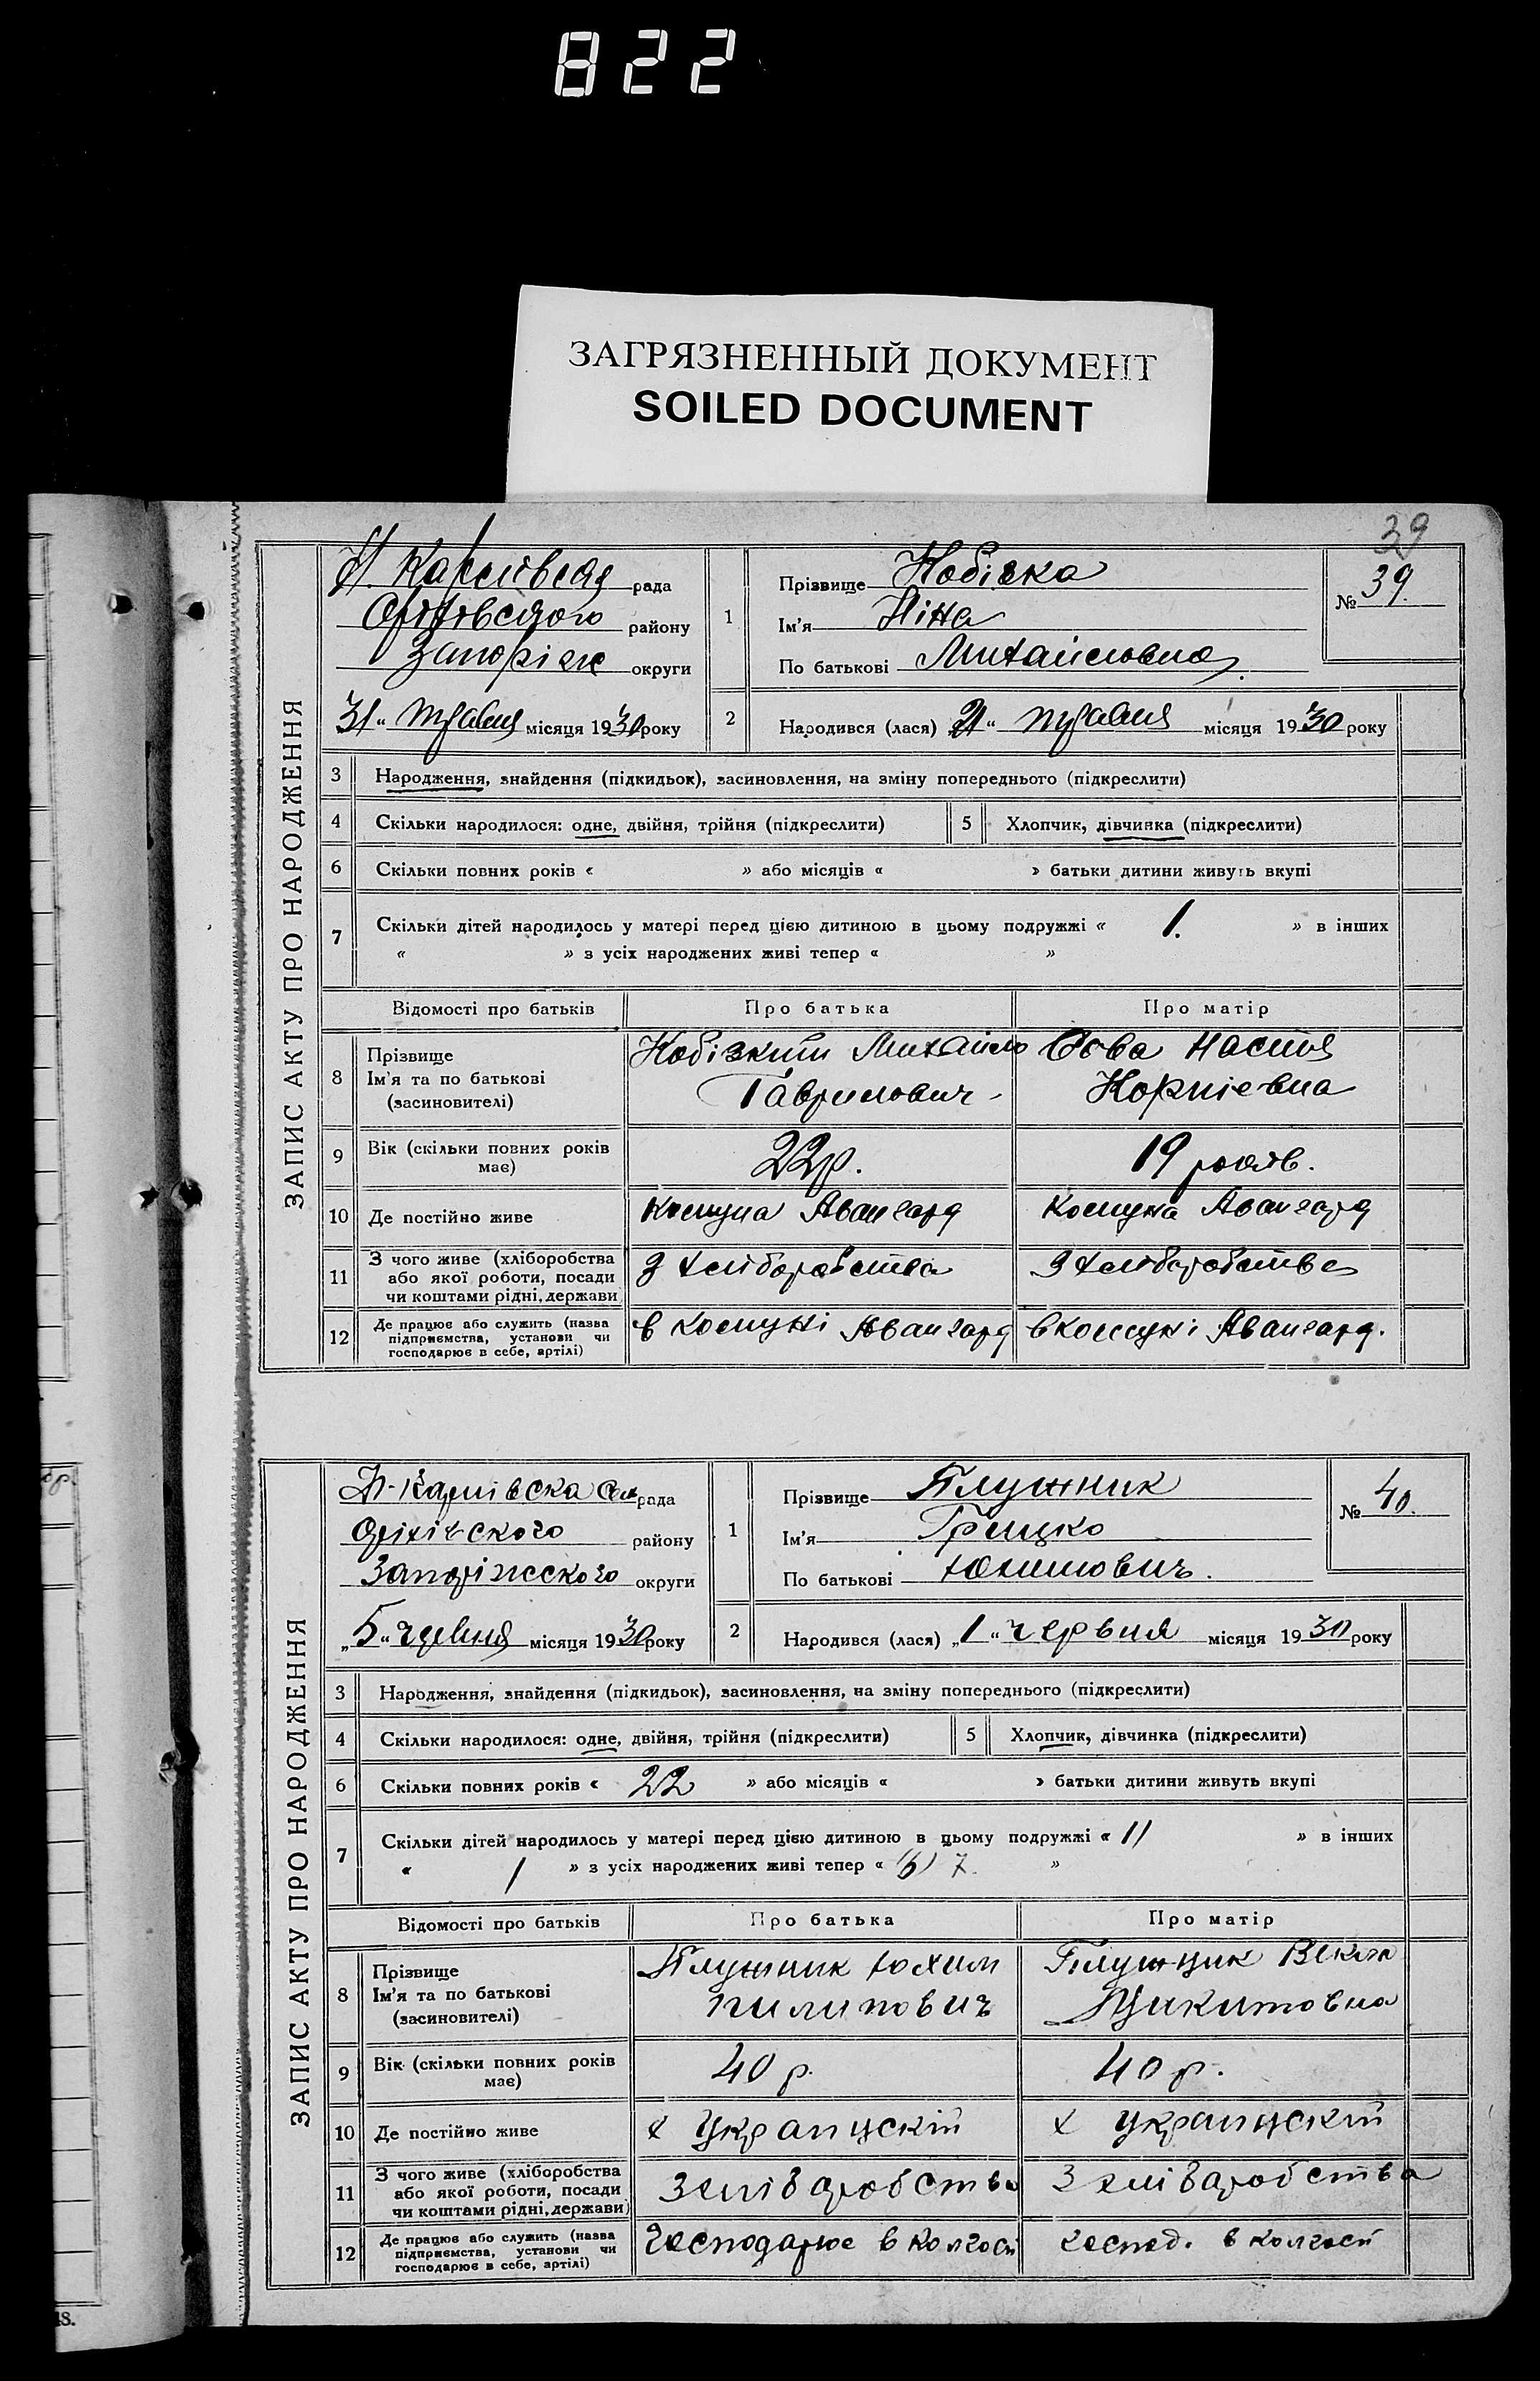 822
ЗАГРЯЗНЕННЫЙ ДОКУМЕНТ
SOILED DOCUMENT
39
ЗАПИС АКТУ ПРО НАРОДЖЕННЯ
рада
району
Запоріж округи
31 " травня місяця 1930 року
1
Прізвище
Ім'я Ніна
По батькові Михайловна
№ 39.
2
Народився (лася) " травня місяця 1930 року
3 Народження, знайдення (підкидьок), засиновлення, на зміну попереднього (підкреслити)
4 Скільки народилося: одне, двійня, трійня (підкреслити) 5 Хлопчик, дівчинка (підкреслити)
6 Скільки повних років « » або місяців « » батьки дитини живуть вкупі
7 Скільки дітей народилось у матері перед цією дитиною в цьому подружжі « 1. » в інших
« » з усіх народжених живі тепер « »
Відомості про батьків Про батька Про матір
8 Прізвище
Ім'я та по батькові
(засиновителі)
Михайло
Гаврилович
Сова Настя
Корніевна
9 Вік (скільки повних років
має)
22 р. 19 років.
10 Де постійно живе Комуна Авангард Комуна Авангард
11 З чого живе (хліборобства
або якої роботи, посади
чи коштами рідні, держави)
З хліборобства З хліборобства
12 Де працює або служить (назва
підприємства, установи чи
господарює в себе, артілі)
в комуні Авангард в комуні Авангард.
ЗАПИС АКТУ ПРО НАРОДЖЕННЯ
рада
Оріхівського району
Запоріжського округи
„5" червня місяця 1930 року
1
Прізвище Плужник
Ім'я Грицко
По батькові Юхимовичъ.
№ 40.
2
Народився (лася) „1" червня місяця 1930 року
3 Народження, знайдення (підкидьок), засиновлення, на зміну попереднього (підкреслити)
4 Скільки народилося: одне, двійня, трійня (підкреслити) 5 Хлопчик, дівчинка (підкреслити)
6 Скільки повних років « 22 » або місяців « » батьки дитини живуть вкупі
7 Скільки дітей народилось у матері перед цією дитиною в цьому подружжі « 11 » в інших
« / » з усіх народжених живі тепер « 7. »
Відомості про батьків Про батька Про матір
8 Прізвище
Ім'я та по батькові
(засиновителі)
Плужник Юхим
Пилиповичъ
Плужник
Микитовна
9 Вік (скільки повних років
має)
40 р. 40 р.
10 Де постійно живе х Украинский х Украинский
11 З чого живе (хліборобства
або якої роботи, посади
чи коштами рідні, держави)
12 Де працює або служить (назва
підприємства, установи чи
господарює в себе, артілі)
Господарює в колгосп господ. в колгосп